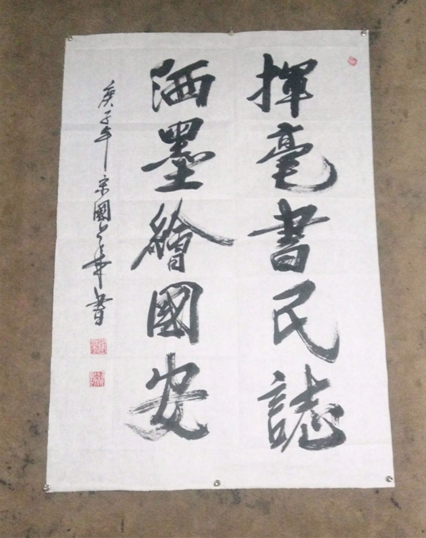 揮毫書民誌
洒墨繪國安
庚子年宗國華書